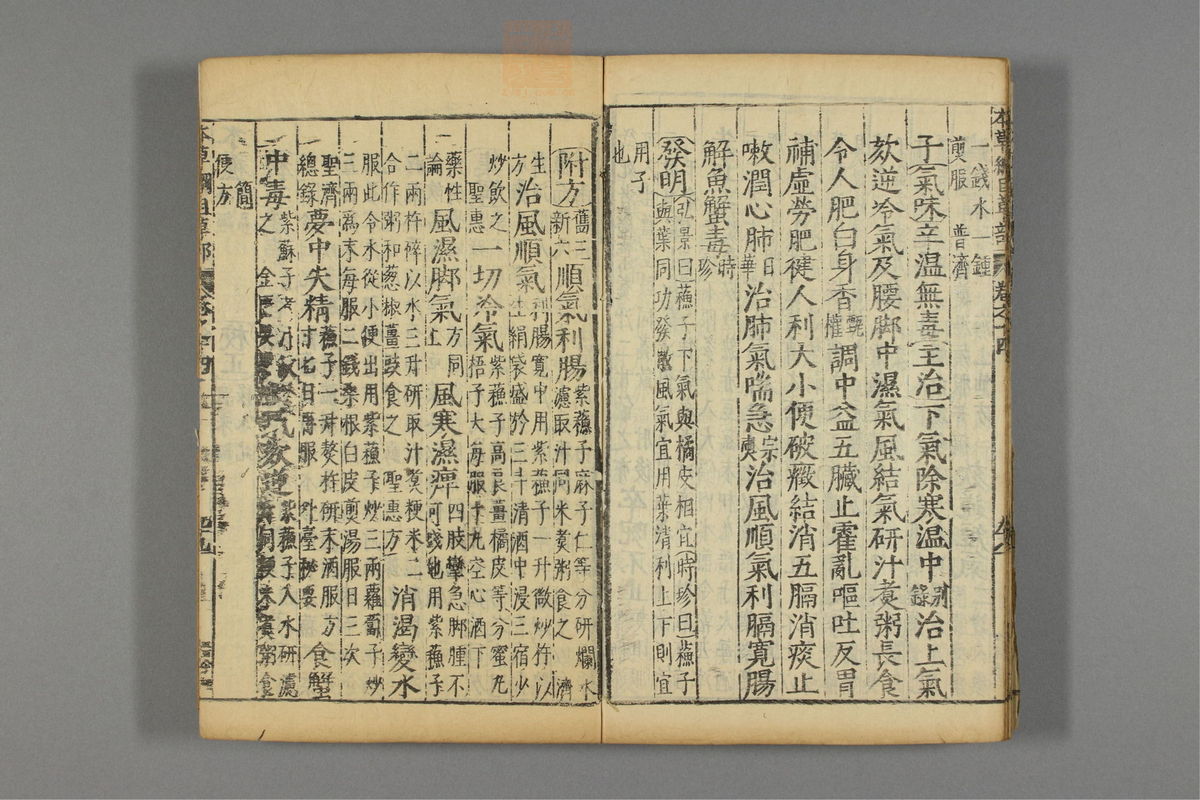 一錢水 普濟
煎服
子氣味辛溫無毒主治下氣除寒溫中別錄治上氣
欬逆冷氣及腰脚中濕氣風結氣研汁煑粥長食
令人肥白身香甄權調中益五臟止霍亂嘔吐反胃
補虛勞肥健人利大小便破癥結消五膈消痰止
嗽潤心肺日華治肺氣喘急宗奭治風順氣利膈寬腸
解魚蟹毒時珍
發明弘景曰蘓子下氣與橘皮相宜時珍曰蘓子
與葉同功發散風氣宜用葉清利上下則宜
用子
也
附方舊三新六順氣利腸紫蘓子麻子仁等分研爛水
濾取汁同米煑粥食之 濟
生方治風順氣利腸寬中用紫蘓子一升微炒杵以
生絹袋盛於三斗清酒中浸三宿少
少飲之 聖惠一切冷氣紫蘓子高良薑橘皮等分蜜丸
梧子大每服十丸空心酒下
藥性論風濕脚氣方同上風寒濕痺四肢攣急脚腫不
可踐地用紫蘓子
二兩杵碎以水三升研取汁煑粳米二
合作粥和葱椒薑豉食之 聖惠方消渴變水
服此令水從小便出用紫蘓子炒三兩蘿蔔子炒
三兩爲末每服二錢桑根白皮煎湯服日三次
聖濟總錄夢中失精蘓子一升熬杵研末酒服方
寸匕日再服 外臺秘要食蟹
中毒紫蘇子
飲之
紫蘓子入水研濾
煑粥食
簡便方